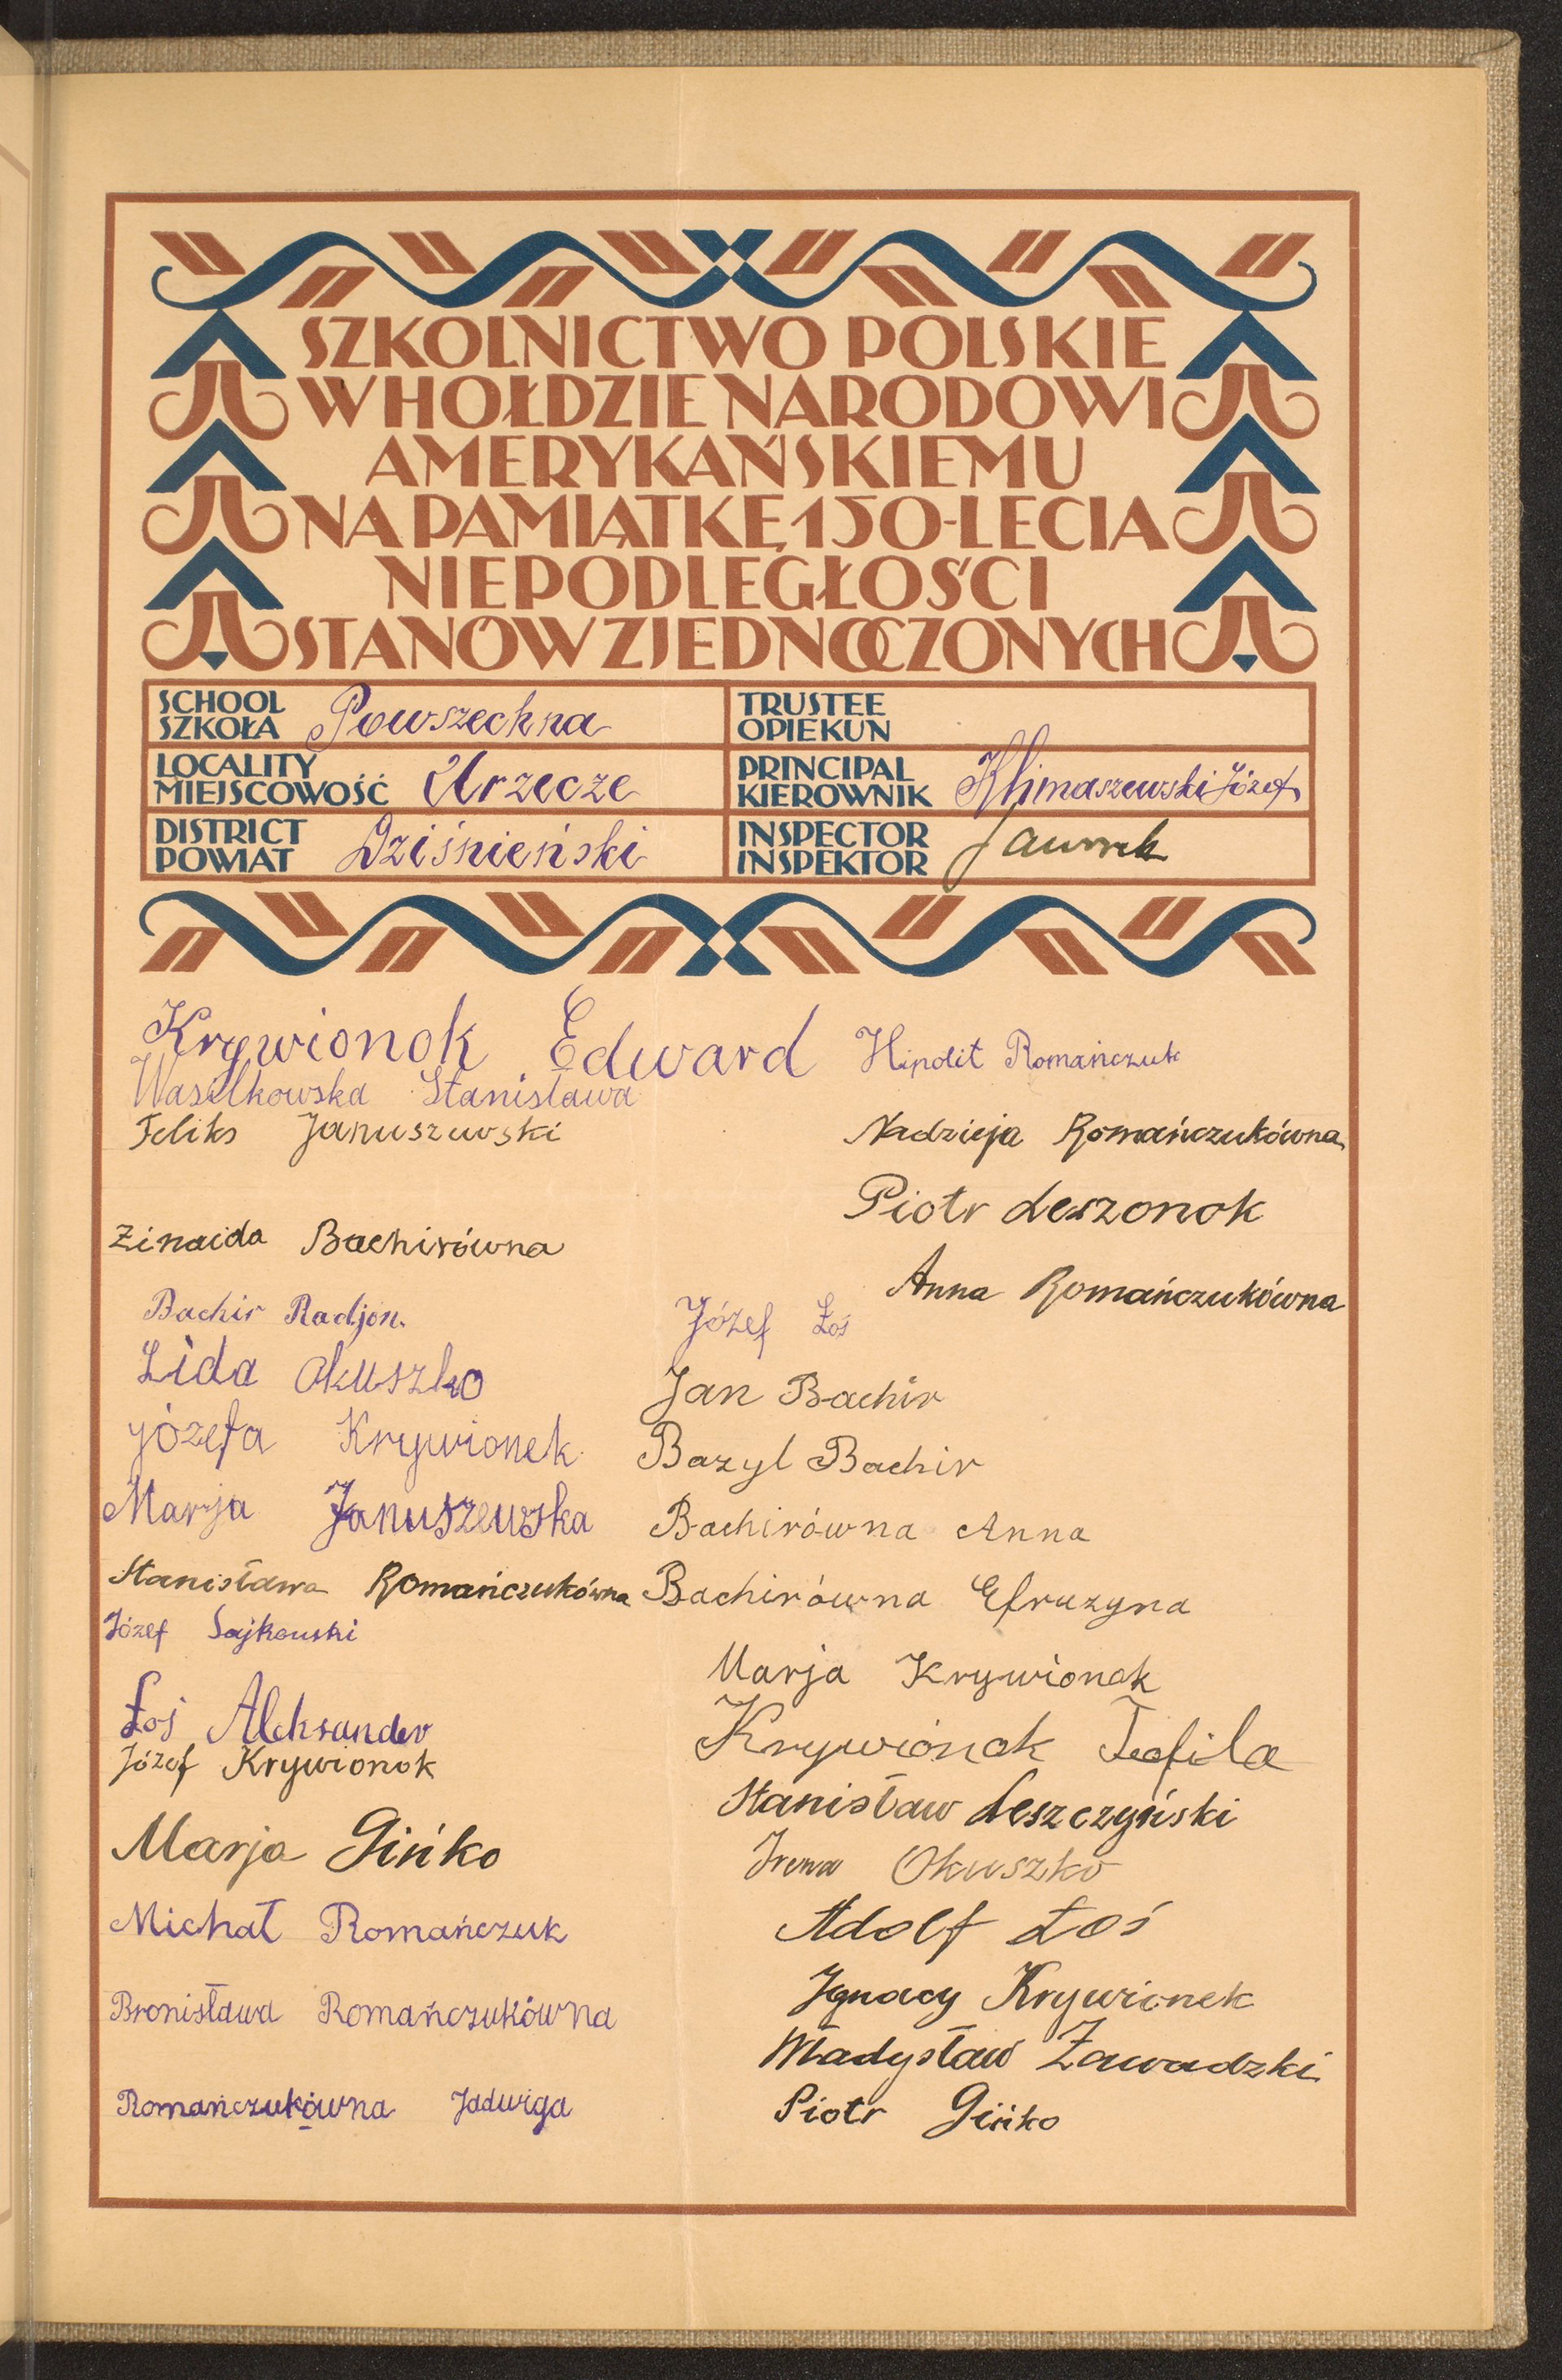 SZKOLNICTWO POLSKIE
W HOŁDZIE NARODOWI
AMERYKAŃSKIEMU
NA PAMIĄTKĘ 150-LECIA
NIEPODLEGŁOŚCI
STANÓW ZJEDNOCZONYCH
SCHOOL
SZKOŁA Powszechna
TRUSTEE
OPIEKUN
LOCALITY
MIEJSCOWOŚĆ Urzecze
PRINCIPAL
KIEROWNIK Klimaszewski Józef
DISTRICT
POWIAT Dziśnieński
INSPECTOR
INSPEKTOR
Krywionok Edward
Wasilkowska Stanisława
Feliks Januszewski
Zinaida Bachirówna
Bachir Radjon.
Lida Okuszko
Józefa Krywionek
Marja Januszewska
Stanisława Romańczukówna
Józef Sajkowski
Łoś Aleksander
Józef Krywionok
Marja Gińko
Michał Romańczuk
Bronisława Romańczukówna
Romańczukówna Jadwiga
Hipolit Romańczuk
Nadzieja Romańczukówna
Piotr Leszonok
Anna Romańczukówna
Józef Łoś
Jan Bachir
Bazyl Bachir
Bachirówna Anna
Bachirówna Efruzyna
Marja Krywionok
Krywionok Teofila
Stanisław Leszczyński
Irena Okuszko
Adolf Łoś
Ignacy Krywionek
Władysław Zawadzki
Piotr Gińko